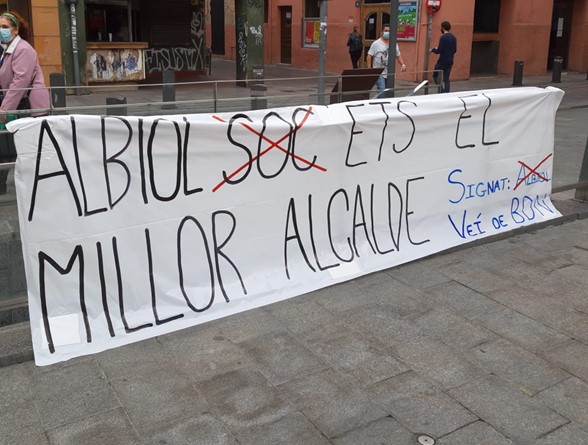 ALBIOL SOC ETS EL
MILLOR ALCALDE
SIGNAT: ALBIOL
VEÍ DE BON